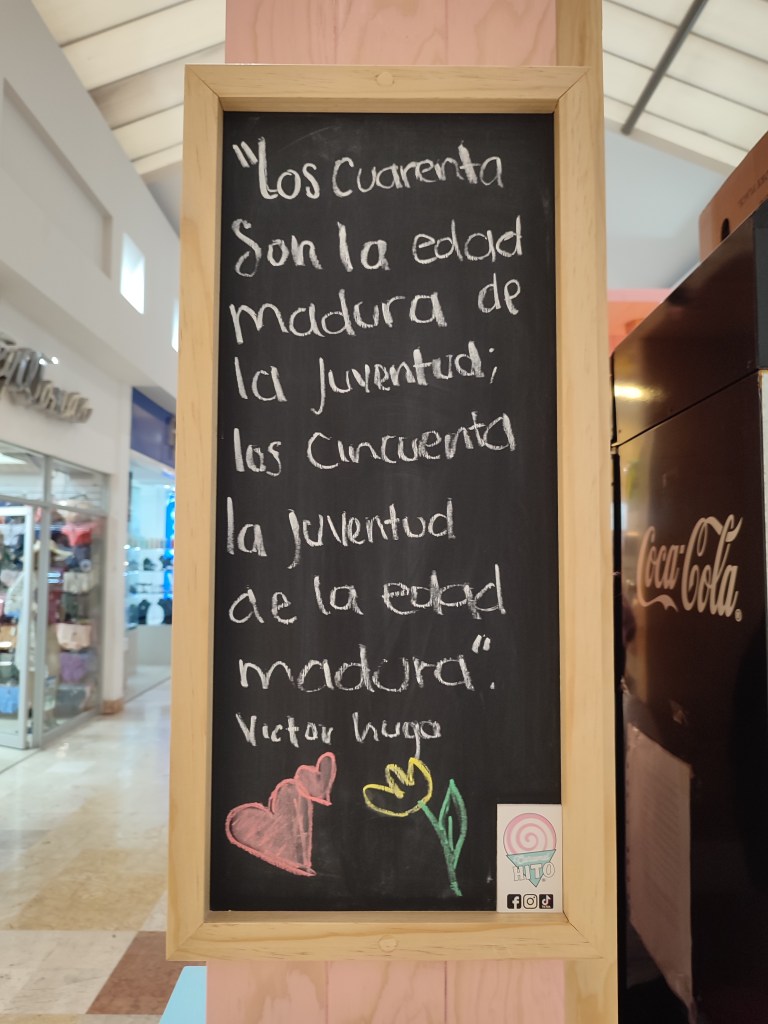 "Los cuarenta
Son la edad
madura de de
la juventud;
los cincuenta
la juventud
de la edad
madura".
Victor hugo
HITO
Coca-Cola®